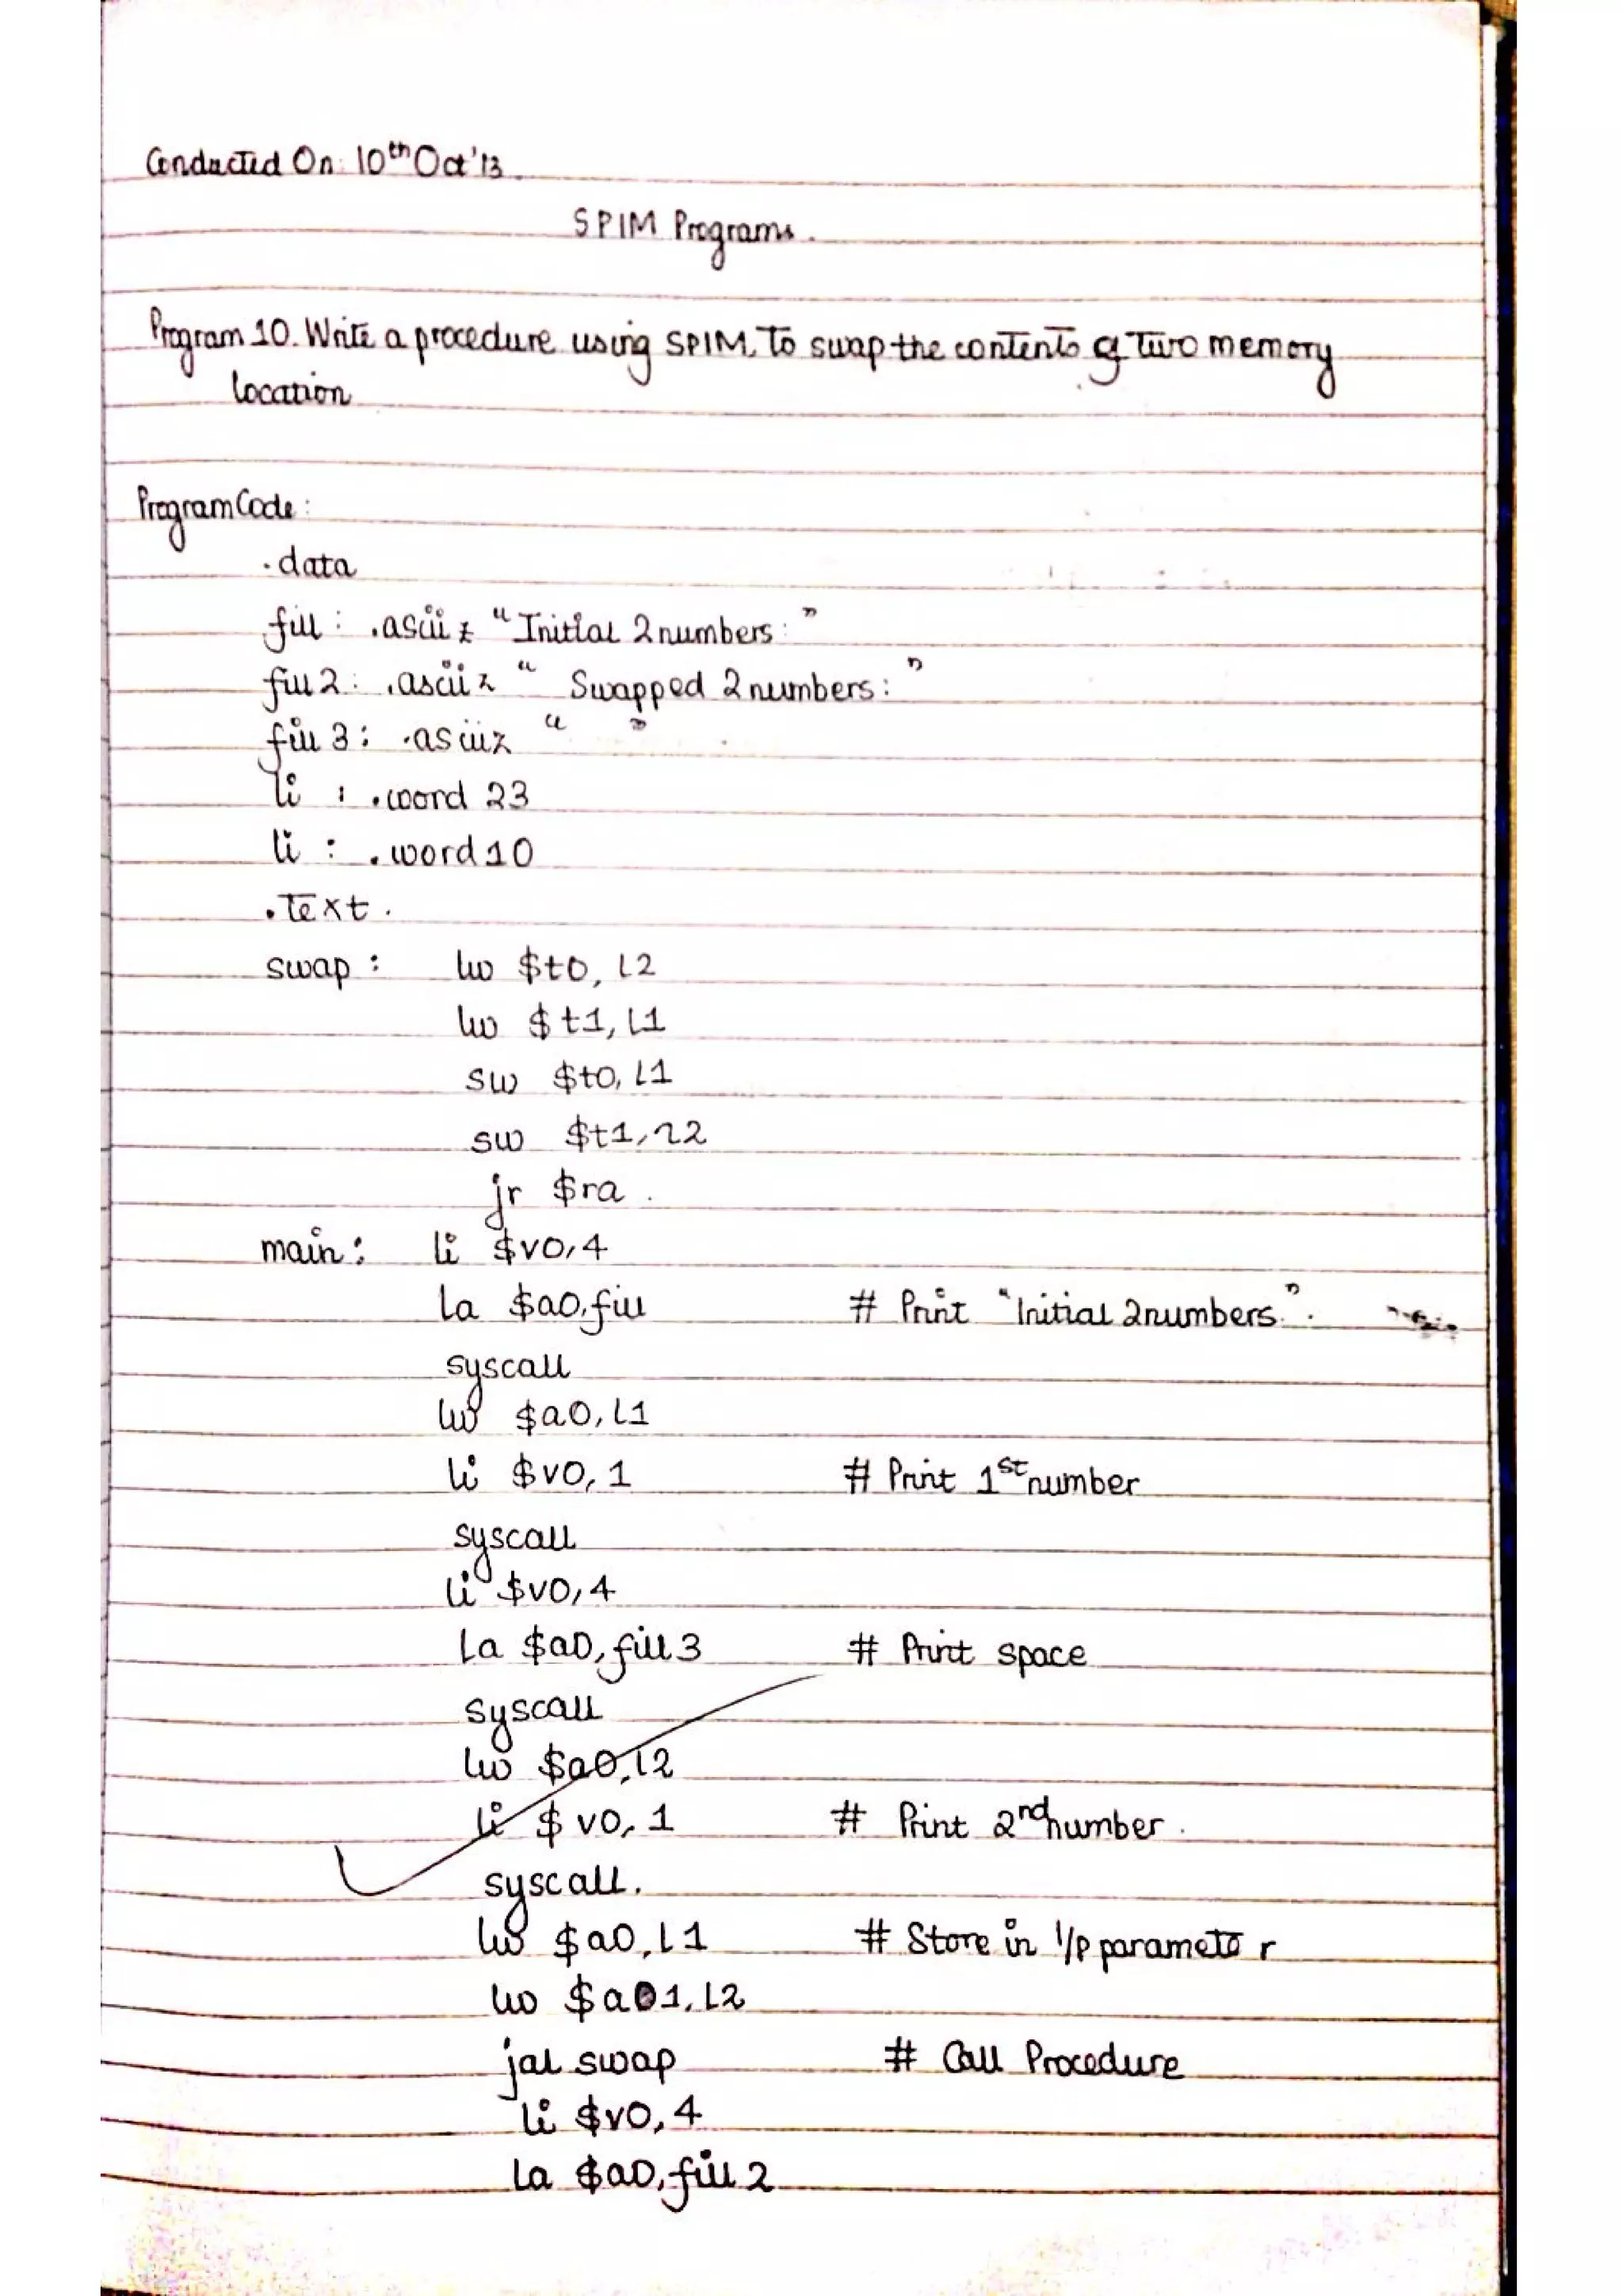 Conducted On: 10th Oct'13.
SPIM Programs.
Program 10. Write a procedure using SPIM, To swap the contents of Two memory
location
Program Code:
.data
fill : .asciiz "Initial 2 numbers : "
fill 2 : .asciiz " Swapped 2 numbers : "
fill 3 : .asciiz " "
li : .word 23
li : .word 10
.Text.
swap : lw $t0, l2
lw $t1, l1
sw $t0, l1
sw $t1, l2
jr $ra.
main : li $v0, 4
la $a0, fill # Print "Initial 2 numbers.".
syscall
lw $a0, l1
li $v0, 1 # Print 1st number
syscall
li $v0, 4
la $a0, fill 3 # Print space
syscall
lw $a0, l2
li $v0, 1 # Print 2nd number.
syscall.
lw $a0, l1 # Store in I/P parameter
lw $a01, l2
jal swap # Call Procedure
li $v0, 4
la $a0, fill 2